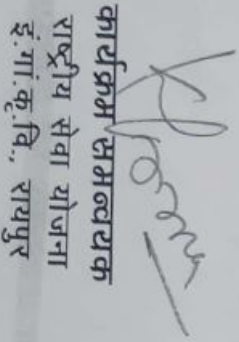 कार्यक्रम समन्वयक
राष्ट्रीय सेवा योजना
इं.गां.कृ.वि., रायपुर